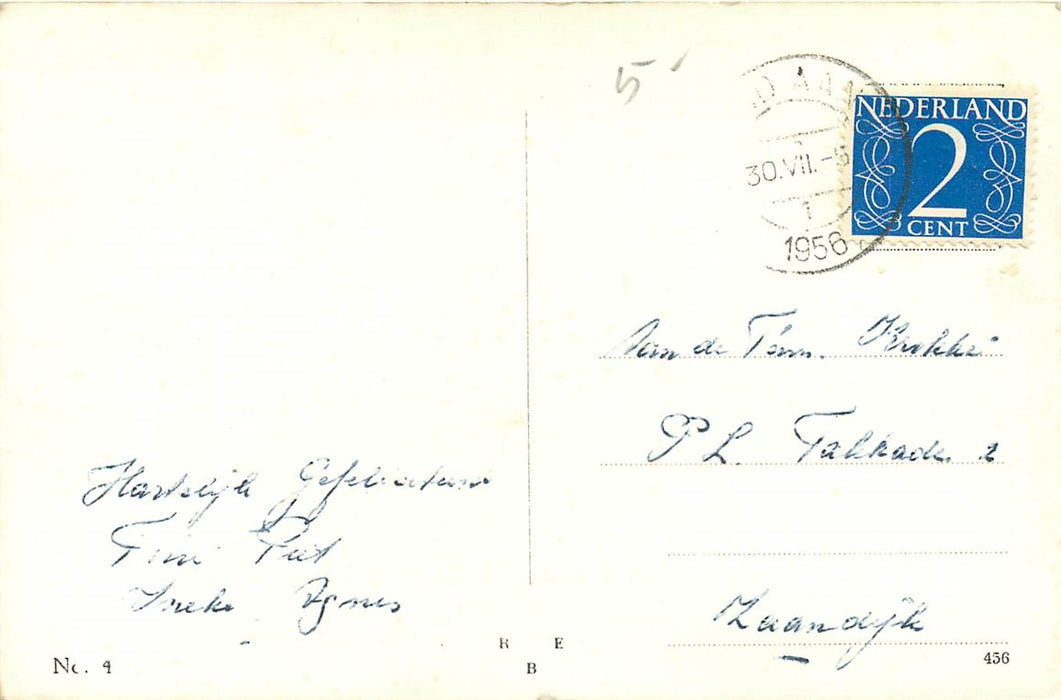 5
AAN
30.VII.-5
1
1956
NEDERLAND
2
CENT
Aan de Fam. Krokké
P L. Talkade 2
Zaandijk
Hartelijk Gefeliciteerd
Timi Piet
Ineke Agnes
No. 4
R E
B
456